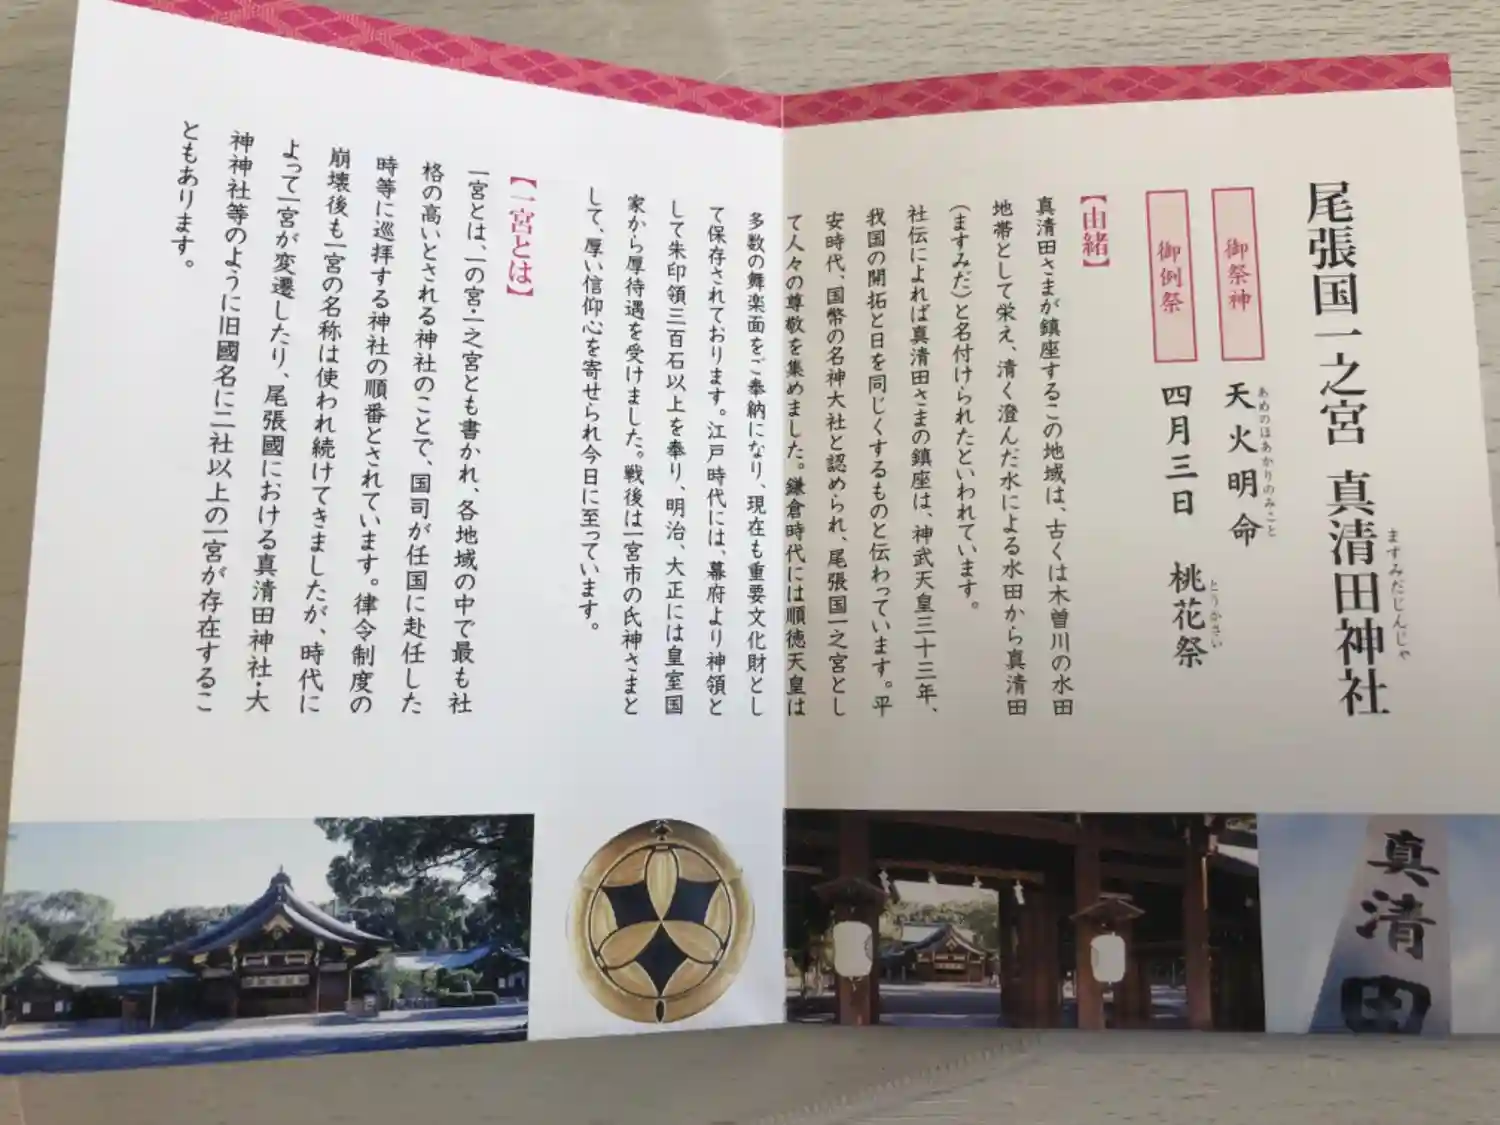 尾張国一之宮 真清田神社
ますみだじんじゃ
御祭神
天火明命
あめのほあかりのみこと
御例祭
四月三日 桃花祭
とうかさい
【由緒】
真清田さまが鎮座するこの地域は、古くは木曽川の水田
地帯として栄え、清く澄んだ水による水田から真清田
(ますみだ)と名付けられたといわれています。
社伝によれば真清田さまの鎮座は、神武天皇三十三年、
我国の開拓と日を同じくするものと伝わっています。平
安時代、国幣の名神大社と認められ、尾張国一之宮とし
て人々の尊敬を集めました。鎌倉時代には順徳天皇は
多数の舞楽面をご奉納になり、現在も重要文化財とし
て保存されております。江戸時代には、幕府より神領と
して朱印領三百石以上を奉り、明治、大正には皇室国
家から厚待遇を受けました。戦後は一宮市の氏神さまと
して、厚い信仰心を寄せられ今日に至っています。
【一宮とは】
一宮とは、一の宮・一之宮とも書かれ、各地域の中で最も社
格の高いとされる神社のことで、国司が任国に赴任した
時等に巡拝する神社の順番とされています。律令制度の
崩壊後も一宮の名称は使われ続けてきましたが、時代に
よって一宮が変遷したり、尾張國における真清田神社・大
神神社等のように旧國名に二社以上の一宮が存在するこ
ともあります。
真清田